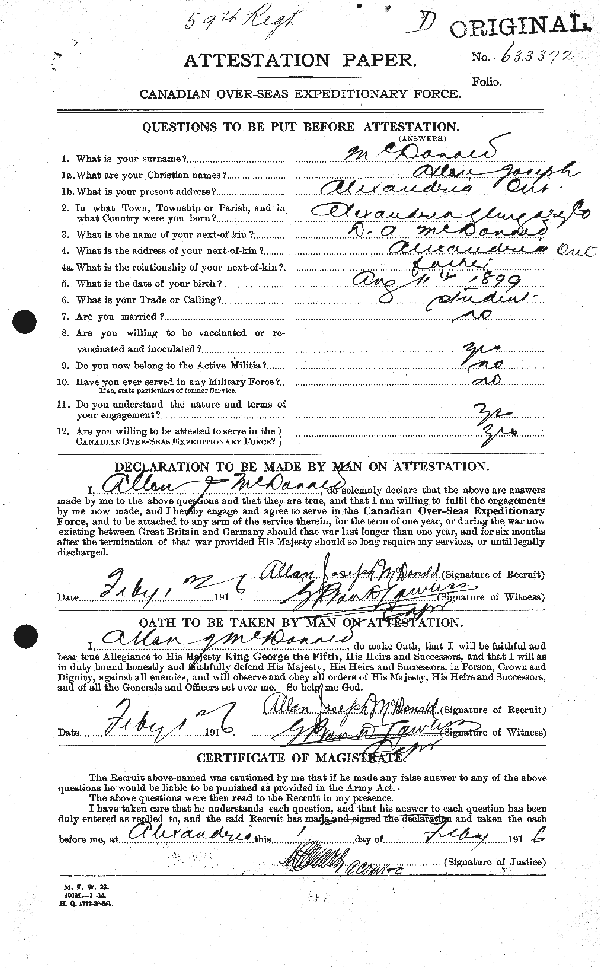 59th Regt D ORIGINAL
ATTESTATION PAPER.
No. 633372
Folio.
CANADIAN OVER-SEAS EXPEDITIONARY FORCE.
QUESTIONS TO BE PUT BEFORE ATTESTATION.
(ANSWERS)
1. What is your surname? McDonald
1a. What are your Christian names? Allan Joseph
1b. What is your present address? Alexandria Ont.
2. In what Town, Township or Parish, and in
what Country were you born? Alexandria Glengarry Co
3. What is the name of your next-of-kin? D. A. McDonald
4. What is the address of your next-of-kin? Alexandria Ont
4a. What is the relationship of your next-of-kin? father
5. What is the date of your birth? Aug 1899
6. What is your Trade or Calling? student
7. Are you married? no
8. Are you willing to be vaccinated or re-
vaccinated and inoculated? yes
9. Do you now belong to the Active Militia? no
10. Have you ever served in any Military Force? no
If so, state particulars of former Service.
11. Do you understand the nature and terms of
your engagement? yes
12. Are you willing to be attested to serve in the
CANADIAN OVER-SEAS EXPEDITIONARY FORCE? yes
DECLARATION TO BE MADE BY MAN ON ATTESTATION.
I, Allan J McDonald, do solemnly declare that the above are answers
made by me to the above questions and that they are true, and that I am willing to fulfil the engagements
by me now made, and I hereby engage and agree to serve in the Canadian Over-Seas Expeditionary
Force, and to be attached to any arm of the service therein, for the term of one year, or during the war now
existing between Great Britain and Germany should that war last longer than one year, and for six months
after the termination of that war provided His Majesty should so long require my services, or until legally
discharged.
Allan Joseph McDonald (Signature of Recruit)
Date Feby 1 1916 (Signature of Witness)
OATH TO BE TAKEN BY MAN ON ATTESTATION.
I, Allan J McDonald, do make Oath, that I will be faithful and
bear true Allegiance to His Majesty King George the Fifth, His Heirs and Successors, and that I will as
in duty bound honestly and faithfully defend His Majesty, His Heirs and Successors, in Person, Crown and
Dignity, against all enemies, and will observe and obey all orders of His Majesty, His Heirs and Successors,
and of all the Generals and Officers set over me. So help me God.
Allan Joseph McDonald (Signature of Recruit)
Date Feby 1 1916 (Signature of Witness)
CERTIFICATE OF MAGISTRATE.
The Recruit above-named was cautioned by me that if he made any false answer to any of the above
questions he would be liable to be punished as provided in the Army Act.
The above questions were then read to the Recruit in my presence.
I have taken care that he understands each question, and that his answer to each question has been
duly entered as replied to, and the said Recruit has made and signed the declaration and taken the oath
before me, at Alexandria this 1 day of Feby 1916
(Signature of Justice)
M. F. W. 23.